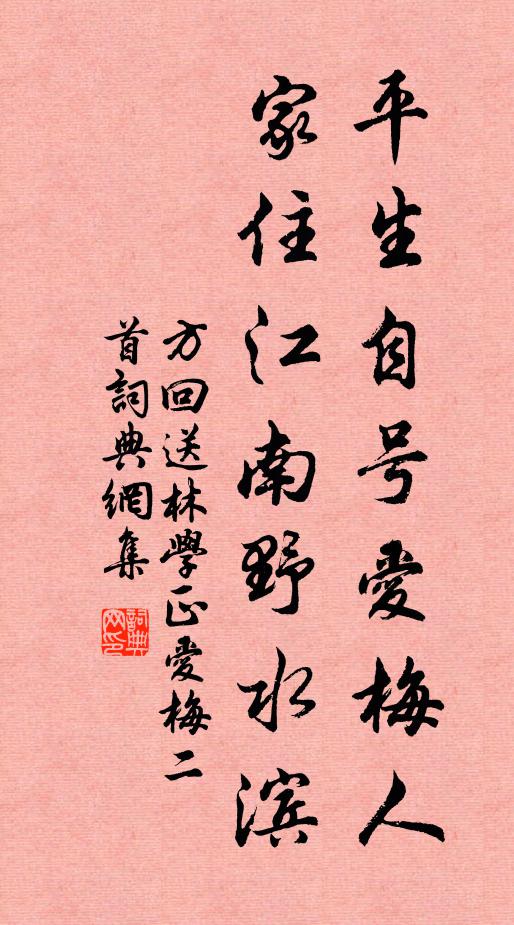 平生自号爱梅人
家住江南野水滨
方回送林學正愛梅二
首詞典網集
詞典网印